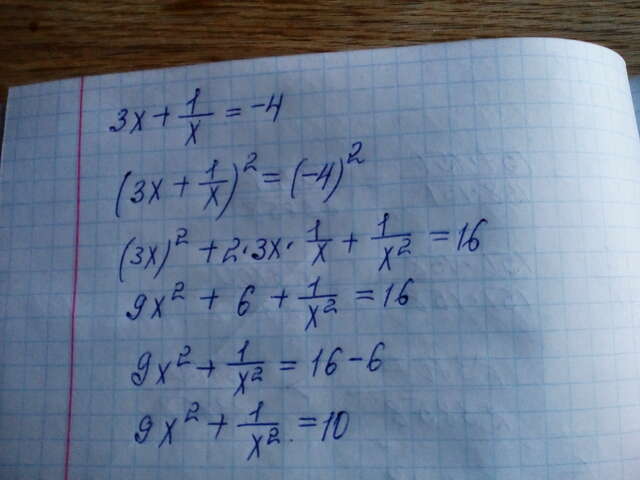 3x + 1/x = -4
(3x + 1/x)² = (-4)²
(3x)² + 2·3x· 1/x + 1/x² = 16
9x² + 6 + 1/x² = 16
9x² + 1/x² = 16 - 6
9x² + 1/x² = 10